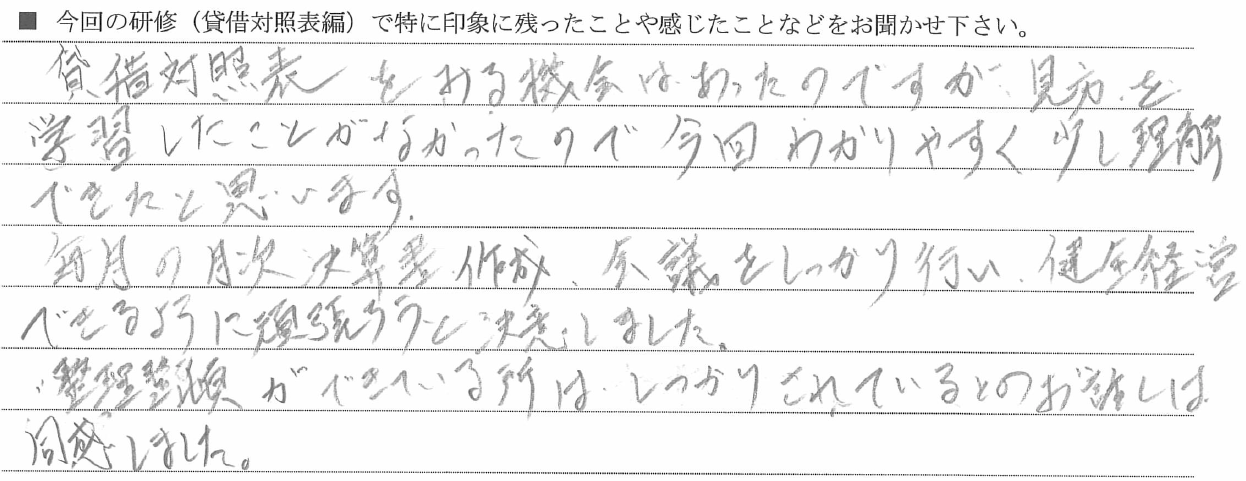 ■ 今回の研修（貸借対照表編）で特に印象に残ったことや感じたことなどをお聞かせ下さい。
貸借対照表をみる機会はあったのですが、見方を
学習したことがなかったので今回わかりやすく少し理解
できたと思います。
毎月の月次決算書作成、会議をしっかり行い、健全経営
できるように頑張ろうと決意しました。
整理整頓ができている所は、しっかりされているとのお話しは
同感しました。